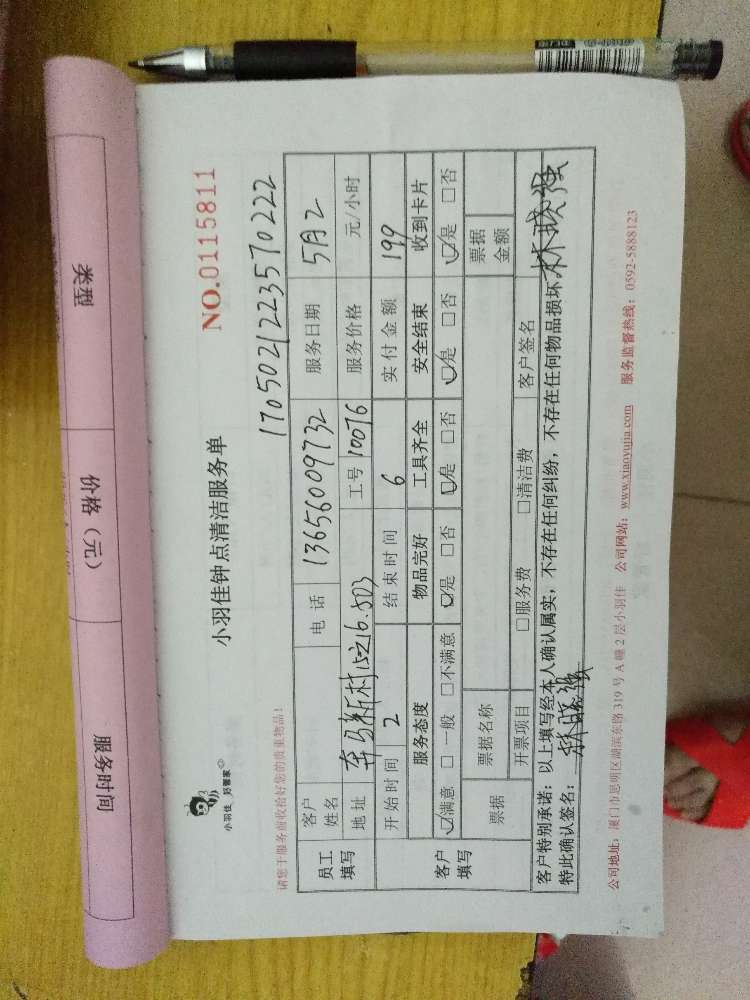 小羽佳 好管家
小羽佳钟点清洁服务单
NO.0115811
请您于服务前收拾好您的贵重物品!
1705021223570222
员工填写
客户姓名 电话 13656009732 服务日期 5月2
地址 奔马新村15之16.503 工号 10076 服务价格 元/小时
开始时间 2 结束时间 6 实付金额 199
客户填写
服务态度 物品完好 工具齐全 安全结束 收到卡片
☑满意 □一般 □不满意 ☑是 □否 ☑是 □否 ☑是 □否 ☑是 □否
票据 票据名称 票据金额
开票项目 □服务费 □清洁费 客户签名
客户特别承诺:以上填写经本人确认属实,不存在任何纠纷,不存在任何物品损坏
特此确认签名:
公司地址:厦门市思明区湖滨东路319号A幢2层小羽佳 公司网站:www.xiaoyujia.com 服务监督热线:0592-5888123
类型
价格(元)
服务时间